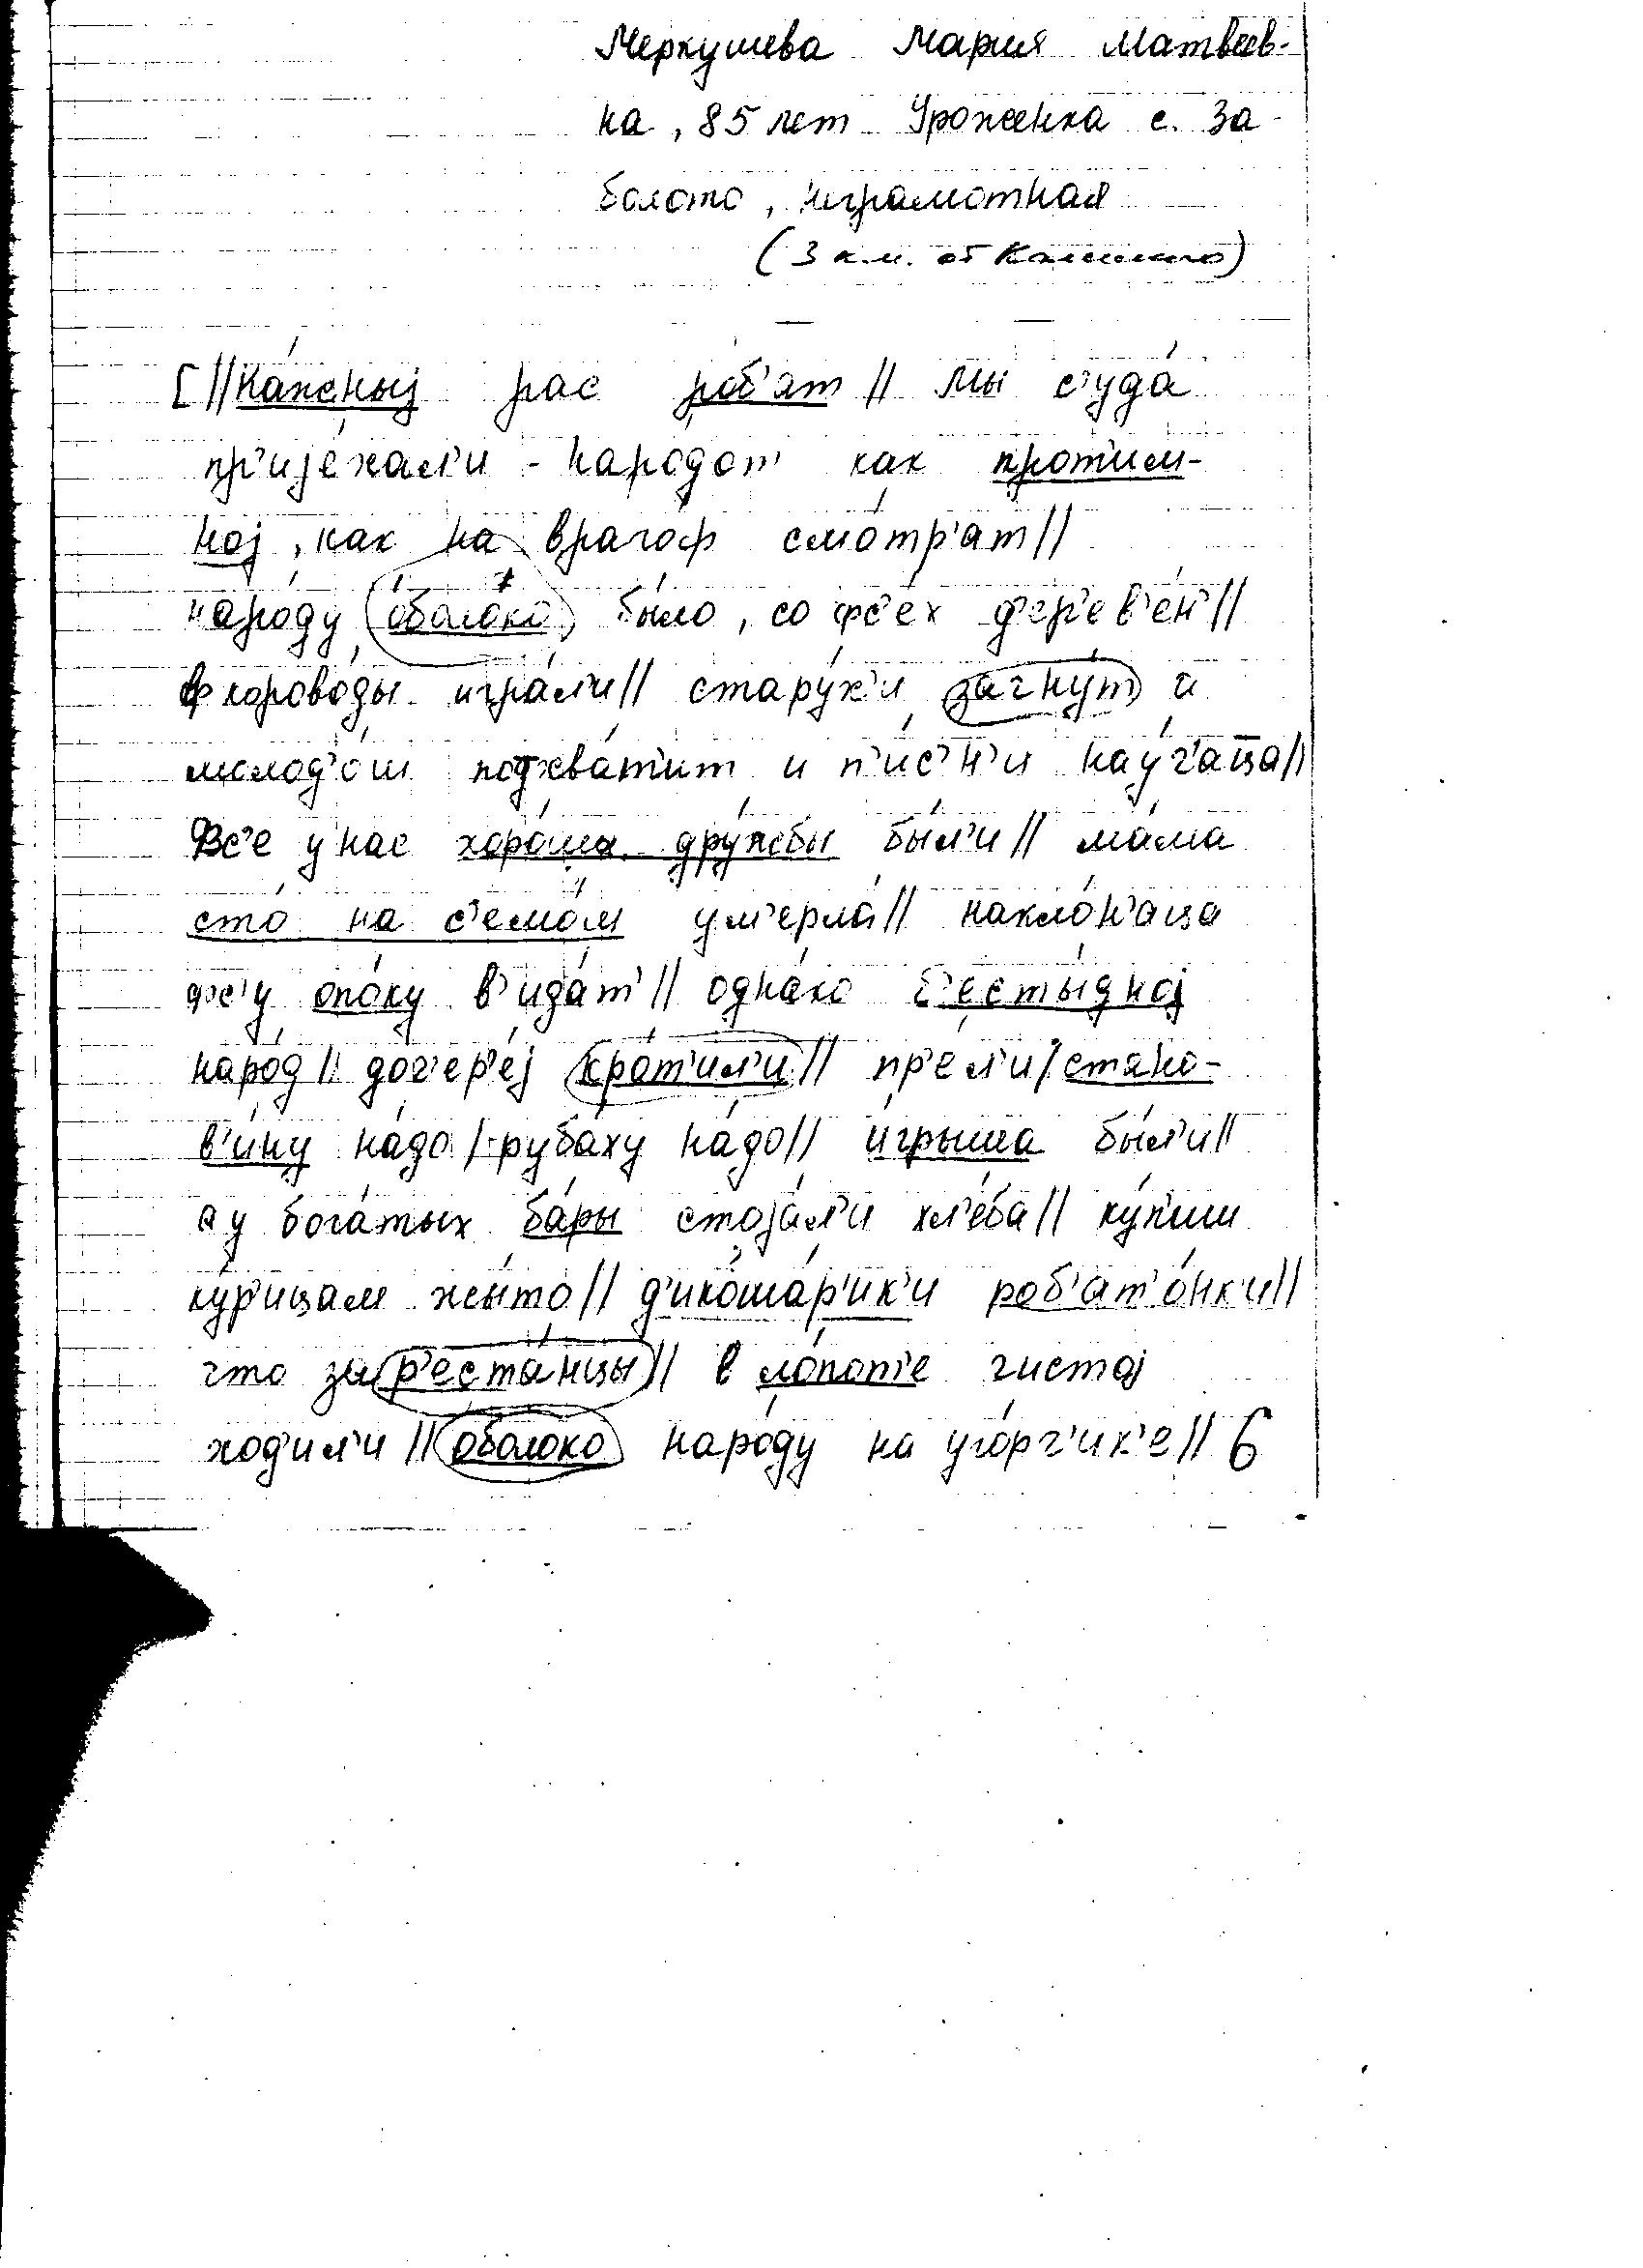 Меркушева Мария Матвеев-
на, 85 лет Уроженка с. За-
болото, неграмотная
(3 км. от
[//ка́жныј рас роб'ат // мы с'уда́
пр'ије́хал'и - народот как прот'им-
ној, как на враго́ф смо́тр'ат//
наро́ду о́блоко бы́ло, со фс'е́х д'ер'ев'е́н'//
ф короводы игра́л'и// стару́х'и зачну́т и
молод'о́ш подхва́т'ит и п'и́с'н'и нау́ч'аца//
Вс'е у нас хоро́ша дру́жбы бы́л'и // ма́ма
сто́ на с'емо́м ум'ерла́// накло́н'аца
фс'у опо́ку в'ида́т' // одна́ко б'есты́дној
наро́д // доч'ер'е́ј кро́т'ил'и // пр'ел'и/стано-
в'и́ну на́до / рубаху на́до// и́грыша бы́л'и//
а у бога́тых ба́ры стоја́л'и хл'е́ба// ку́пиш
ку́р'ицам жы́то // д'икоша́р'ик'и роб'ат'о́нк'и//
что за р'еста́нцы// в ло́пот'е чистој
ход'ил'и // оболоко наро́ду на уго́рч'ик'е// 6